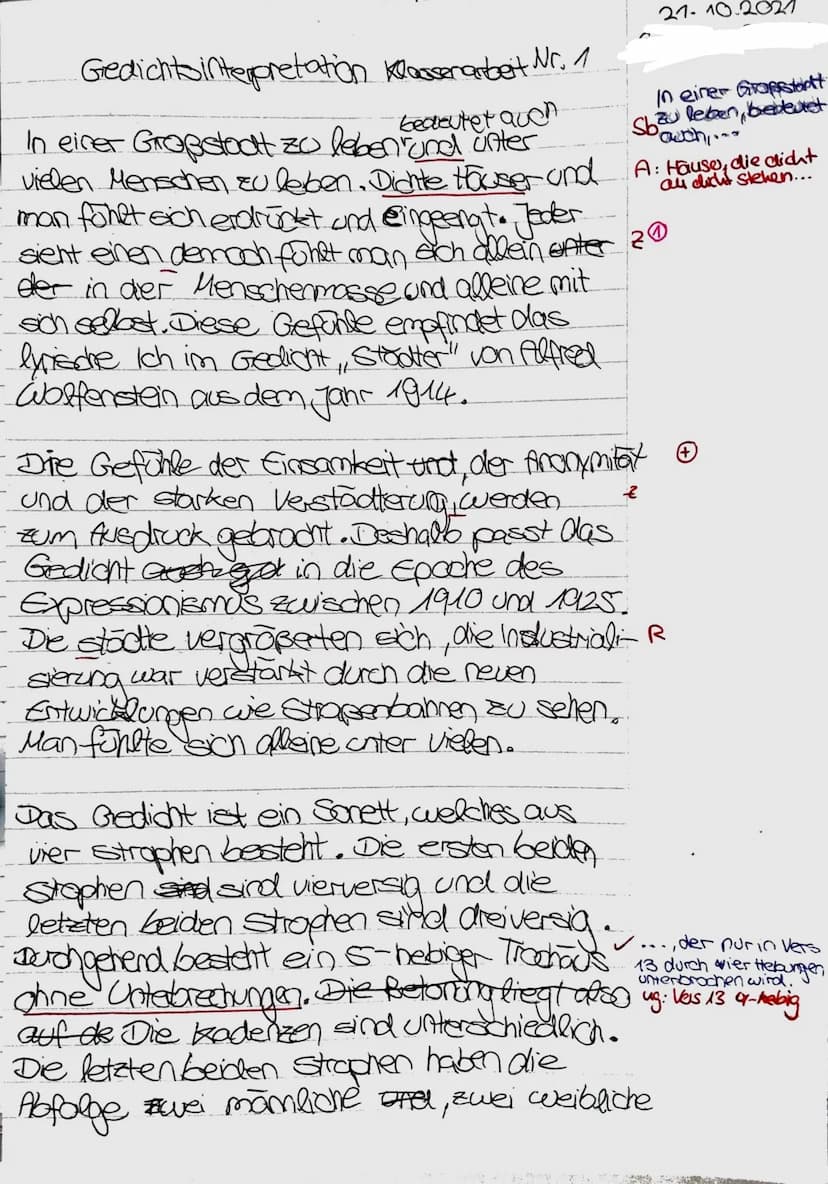 21.10.2021
Gedichtsinterpretation Klassenarbeit Nr. 1
In einer Großstadt
zu leben, bedeutet
Sb auch, ...
bedeutet auch
In einer Großstadt zu leben und unter
vielen Menschen zu leben. Dichte Häuser und
A: Häuser, die dicht
an dicht stehen...
man fühlt sich erdrückt und eingeengt. Jeder
sieht einen dennoch fühlt man sich allein unter
Z 1
der in der Menschenmasse und alleine mit
sich selbst. Diese Gefühle empfindet das
lyrische Ich im Gedicht „Städter" von Alfred
Wolfenstein aus dem Jahr 1914.
Die Gefühle der Einsamkeit und, der Anonymität
+
und der starken Verstädterung, werden
zum Ausdruck gebracht. Deshalb passt das
Gedicht in die Epoche des
Expressionismus zwischen 1910 und 1925.
Die städte vergrößerten sich, die Industriali-
R
sierung war verstärkt durch die neuen
Entwicklungen wie Straßenbahnen zu sehen.
Man fühlte sich alleine unter vielen.
Das Gedicht ist ein Sonett, welches aus
vier strophen besteht. Die ersten beiden
Stophen sind sind vierversig und die
letzten beiden Strophen sind dreiversig.
Durchgehend besteht ein 5-hebiger Trochäus
✓ ..., der nur in Vers
13 durch vier Hebungen
unterbrochen wird.
ohne Unterbrechungen. Die Betonung liegt also
ug: Vers 13 4-hebig
auf de Die Kadenzen sind unterschiedlich.
Die letzten beiden Strophen haben die
Abfolge zwei männliche und, zwei weibliche